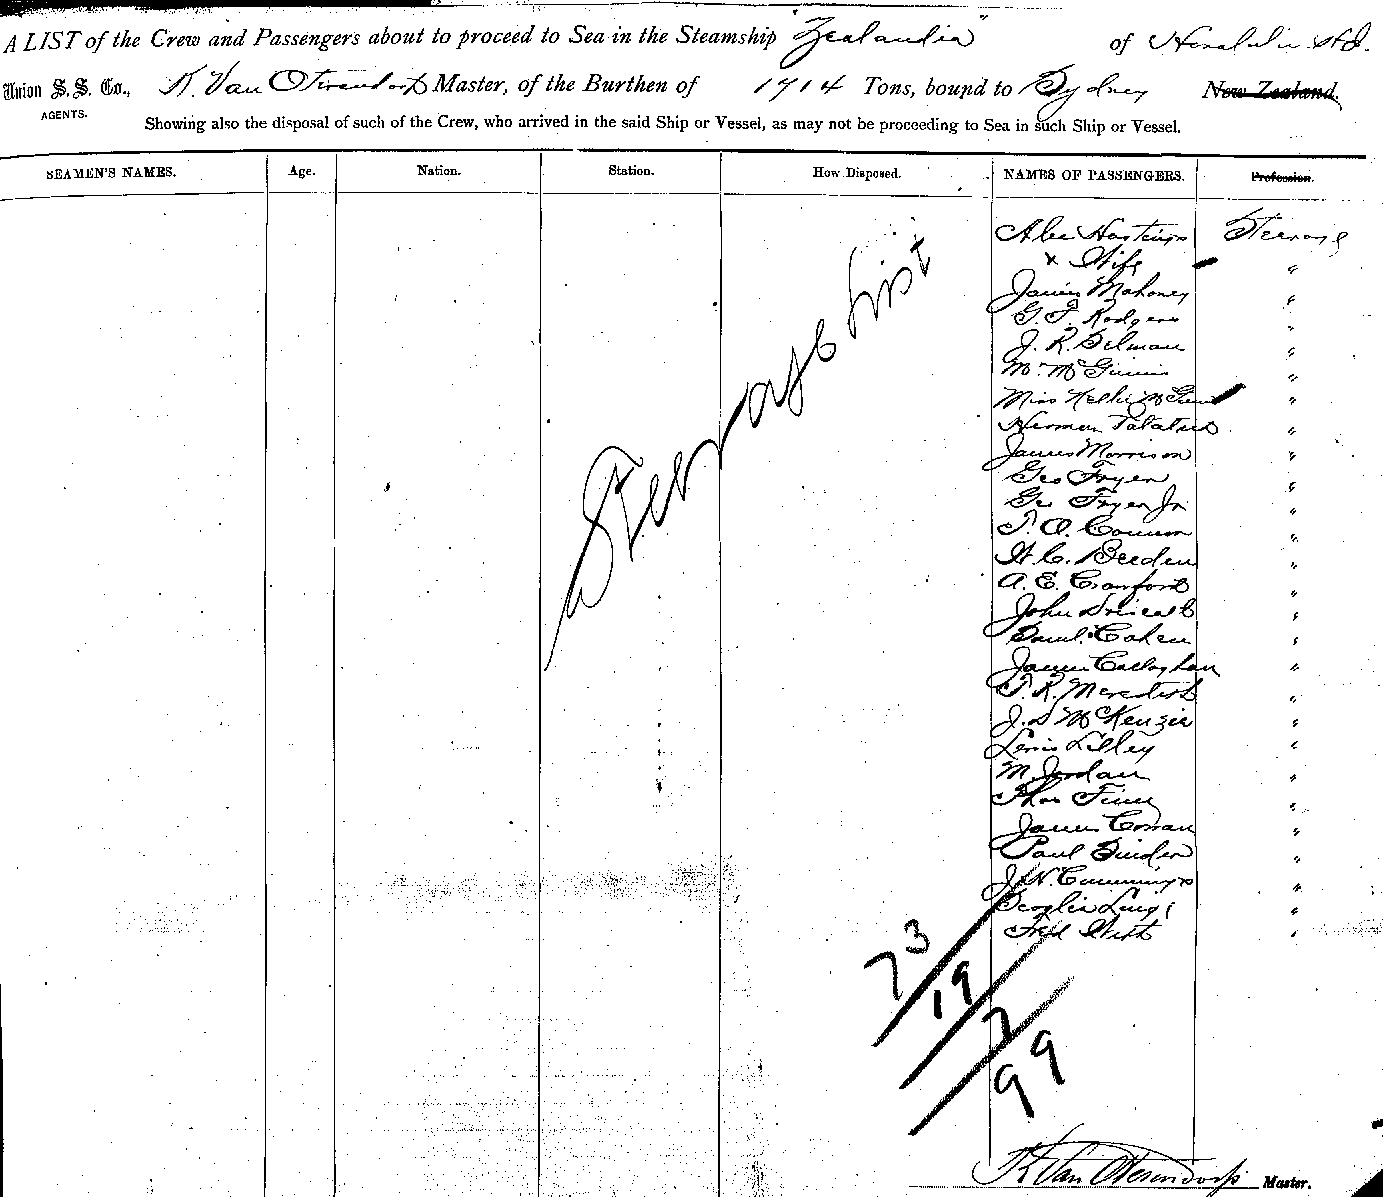 A LIST of the Crew and Passengers about to proceed to Sea in the Steamship "Zealandia" of Honolulu
Union S. S. Co., R. Van Oterendorp Master, of the Burthen of 1914 Tons, bound to Sydney New Zealand.
AGENTS.
Showing also the disposal of such of the Crew, who arrived in the said Ship or Vessel, as may not be proceeding to Sea in such Ship or Vessel.
SEAMEN'S NAMES. Age. Nation. Station. How Disposed. NAMES OF PASSENGERS. Profession.
Alec Hastings Steerage
x Wife "
James Mahoney "
G. F. Rodgers "
J. R. Delman "
M. McGinnis "
Miss Nellie McGinnis "
Herman "
James Morrison "
Geo Fryer "
Geo Fryer Jr. "
T. O. Connor "
H. C. Breeden "
A. E. Cranford "
John Driscoll "
Saml. Cohen "
James Callaghan "
T. R. Meredith "
J. D McKenzie "
Lewis Lilley "
M. Jordan "
Thos Finn "
James Cowan "
Paul Binder "
J. N. Cummings "
Luigi "
Fred "
Steerage List
73
19
7
99
R Van Oterendorp Master.